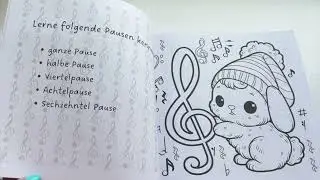 Lerne folgende Pausen kennen
• ganze Pause
• halbe Pause
• Viertelpause
• Achtelpause
• Sechzehntel Pause